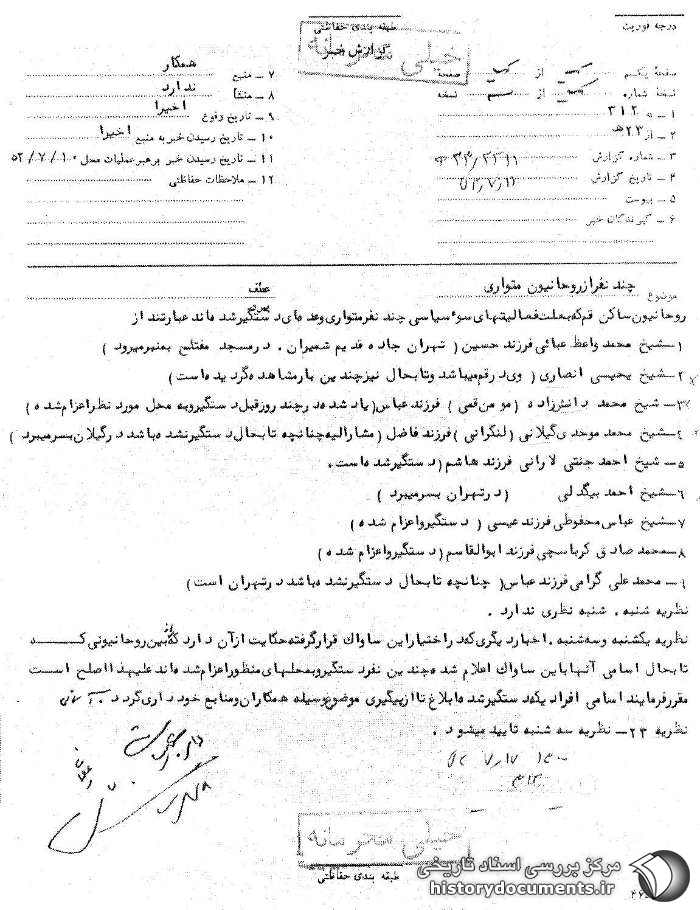 درجه فوریت
طبقه بندی حفاظتی
گزارش خبر
خیلی محرمانه
صفحهٔ یکم از صفحه
نسخهٔ شماره از نسخه
۱ - به ۳۱۲
۲ - از ۲۳ هـ
۳ - شماره گزارش
۴ - تاریخ گزارش
۵ - پیوست
۶ - گیرندگان خبر
۷ - منبع همکار
۸ - منشأ ندارد
۹ - تاریخ وقوع اخیرا
۱۰ - تاریخ رسیدن خبر به منبع اخیرا
۱۱ - تاریخ رسیدن خبر برهبر عملیات محل ۵۲/۷/۱۰
۱۲ - ملاحظات حفاظتی
موضوع چند نفر از روحانیون متواری
عطف
روحانیون ساکن قم که بعلت فعالیتهای سوء سیاسی چند نفر متواری وعده ای دستگیر شده اند عبارتند از
۱- شیخ محمد واعظ عبائی فرزند حسین ( تهران جاده قدیم شمیران . در مسجد مفتاح بمنبر میرود )
۲- شیخ یحیی انصاری ( وی در قم میباشد وتا بحال نیز چندین بار مشاهده گردیده است )
۳- شیخ محمد دانش زاده ( مومن قمی ) فرزند عباس ( یاد شده در چند روز قبل دستگیر وبه محل مورد نظر اعزام شده )
۴- شیخ محمد موحدی گیلانی ( لنکرانی ) فرزند فاضل ( مشارالیه چنانچه تا بحال دستگیر نشده باشد در گیلان بسر میبرد )
۵- شیخ احمد جنتی لادانی فرزند هاشم ( دستگیر شده است .
۶- شیخ احمد بیگدلی ( در تهران بسر میبرد )
۷- شیخ عباس محفوظی فرزند عیسی ( دستگیر واعزام شده )
۸- محمد صادق کرباسچی فرزند ابوالقاسم ( دستگیر واعزام شده )
۹- محمد علی گرامی فرزند عباس ( چنانچه تا بحال دستگیر نشده باشد در تهران است )
نظریه شنبه . شنبه نظری ندارد .
نظریه یکشنبه وسه شنبه . اخبار دیگری که در اختیار این ساواک قرار گرفته حکایت از آن دارد که از بین روحانیونی که
تا بحال اسامی آنها باین ساواک اعلام شده چندین نفر دستگیر وبه محلهای منظور اعزام شده اند علیهذا اصلح است
مقرر فرمایند اسامی افرادیکه دستگیر شده ابلاغ تا از پیگیری موضوع بوسیله همکاران ومنابع خودداری گردد .
نظریه ۲۳ - نظریه سه شنبه تایید میشود .
خیلی محرمانه
طبقه بندی حفاظتی
مرکز بررسی اسناد تاریخی
historydocuments.ir